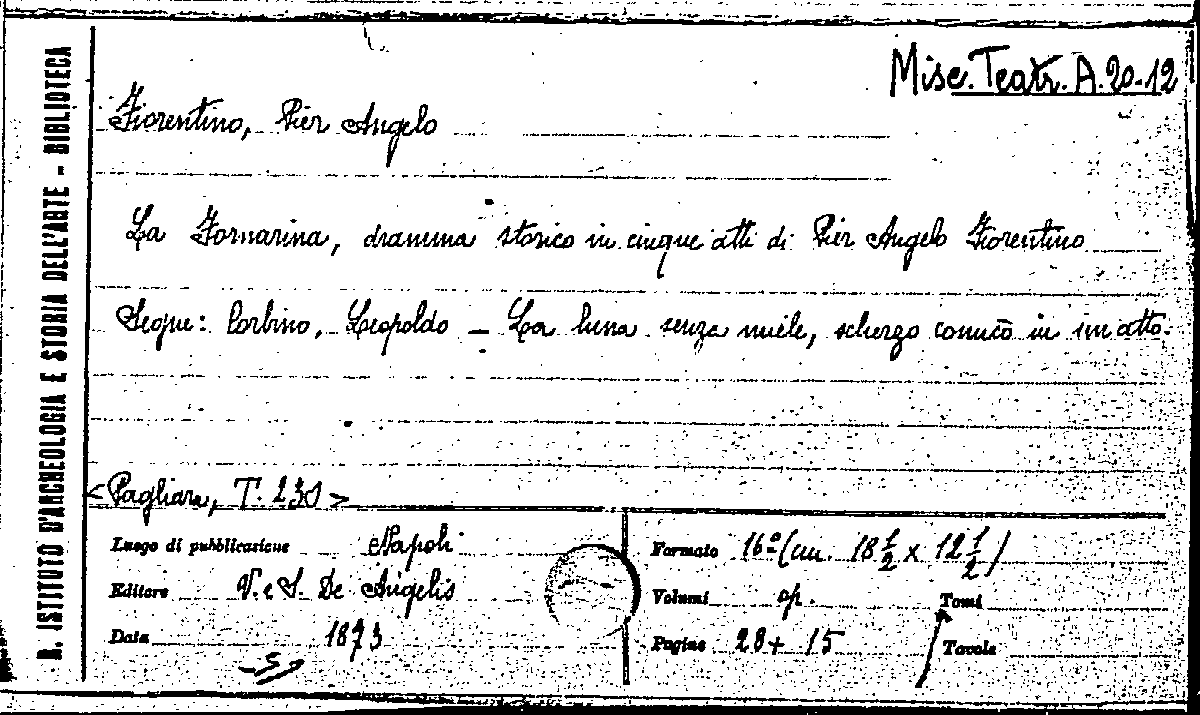 Misc. Teatr. A. 20-12
R. ISTITUTO D'ARCHEOLOGIA E STORIA DELL'ARTE - BIBLIOTECA
Fiorentino, Pier Angelo
La Fornarina, dramma storico in cinque atti di Pier Angelo Fiorentino
Segue: Corbino, Leopoldo - La luna senza miele, scherzo comico in un atto.
<Pagliara, T. 230>
Luogo di pubblicazione Napoli
Editore V. e S. De Angelis
Data 1873
Formato 16° (cm. 18 1/2 x 12 1/2)
Volumi op. Tomi
Pagine 28 + 15 Tavole